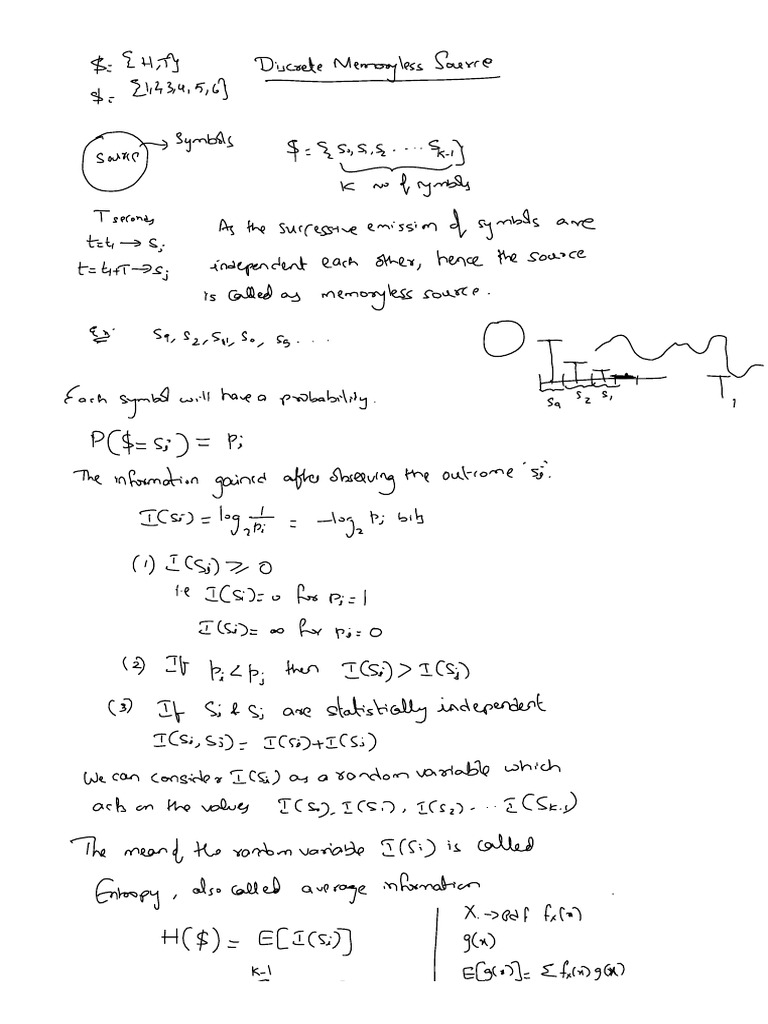 $ = {H,T}
Discrete Memoryless Source
$ = {1,2,3,4,5,6}
Source → Symbols
$ = {S₀, S₁, S₂ .... S_{K-1}}
K no of symbols
T seconds
t=t₁ → Si
t=t₁+T → Sj
As the successive emission of symbols are
independent each other, hence the source
is called as memoryless source.
Ex: S₉, S₂, S₁₁, S₀, S₅ ...
S₉ S₂ S₁
T 1
Each symbol will have a probability.
P($=Si) = Pi
The information gained after observing the outcome 'Si'.
I(Si) = log₂ 1/Pi = -log₂ Pi bits
(1) I(Si) ≥ 0
i.e I(Si)=0 for Pi=1
I(Si)= ∞ for Pi=0
(2) If Pi < Pj then I(Si) > I(Sj)
(3) If Si & Sj are statistically independent
I(Si, Sj) = I(Si)+I(Sj)
We can consider I(Si) as a random variable which
acts on the values I(S₀), I(S₁), I(S₂) ... I(S_{K-1})
The mean of the random variable I(Si) is called
Entropy, also called average information
H($) = E[I(Si)]
K-1
X → pdf fx(x)
g(x)
E[g(x)] = Σ fx(x) g(x)